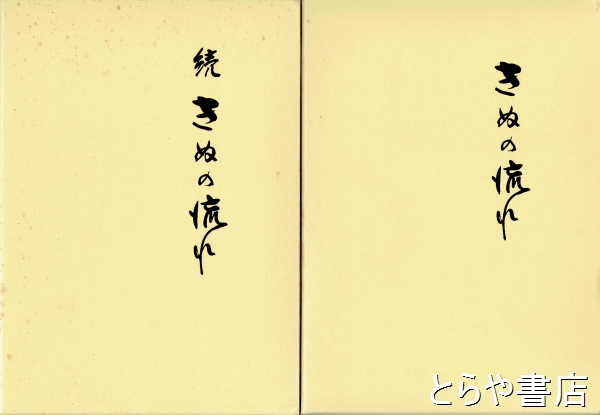 きぬの流れ
続 きぬの流れ
とらや書店